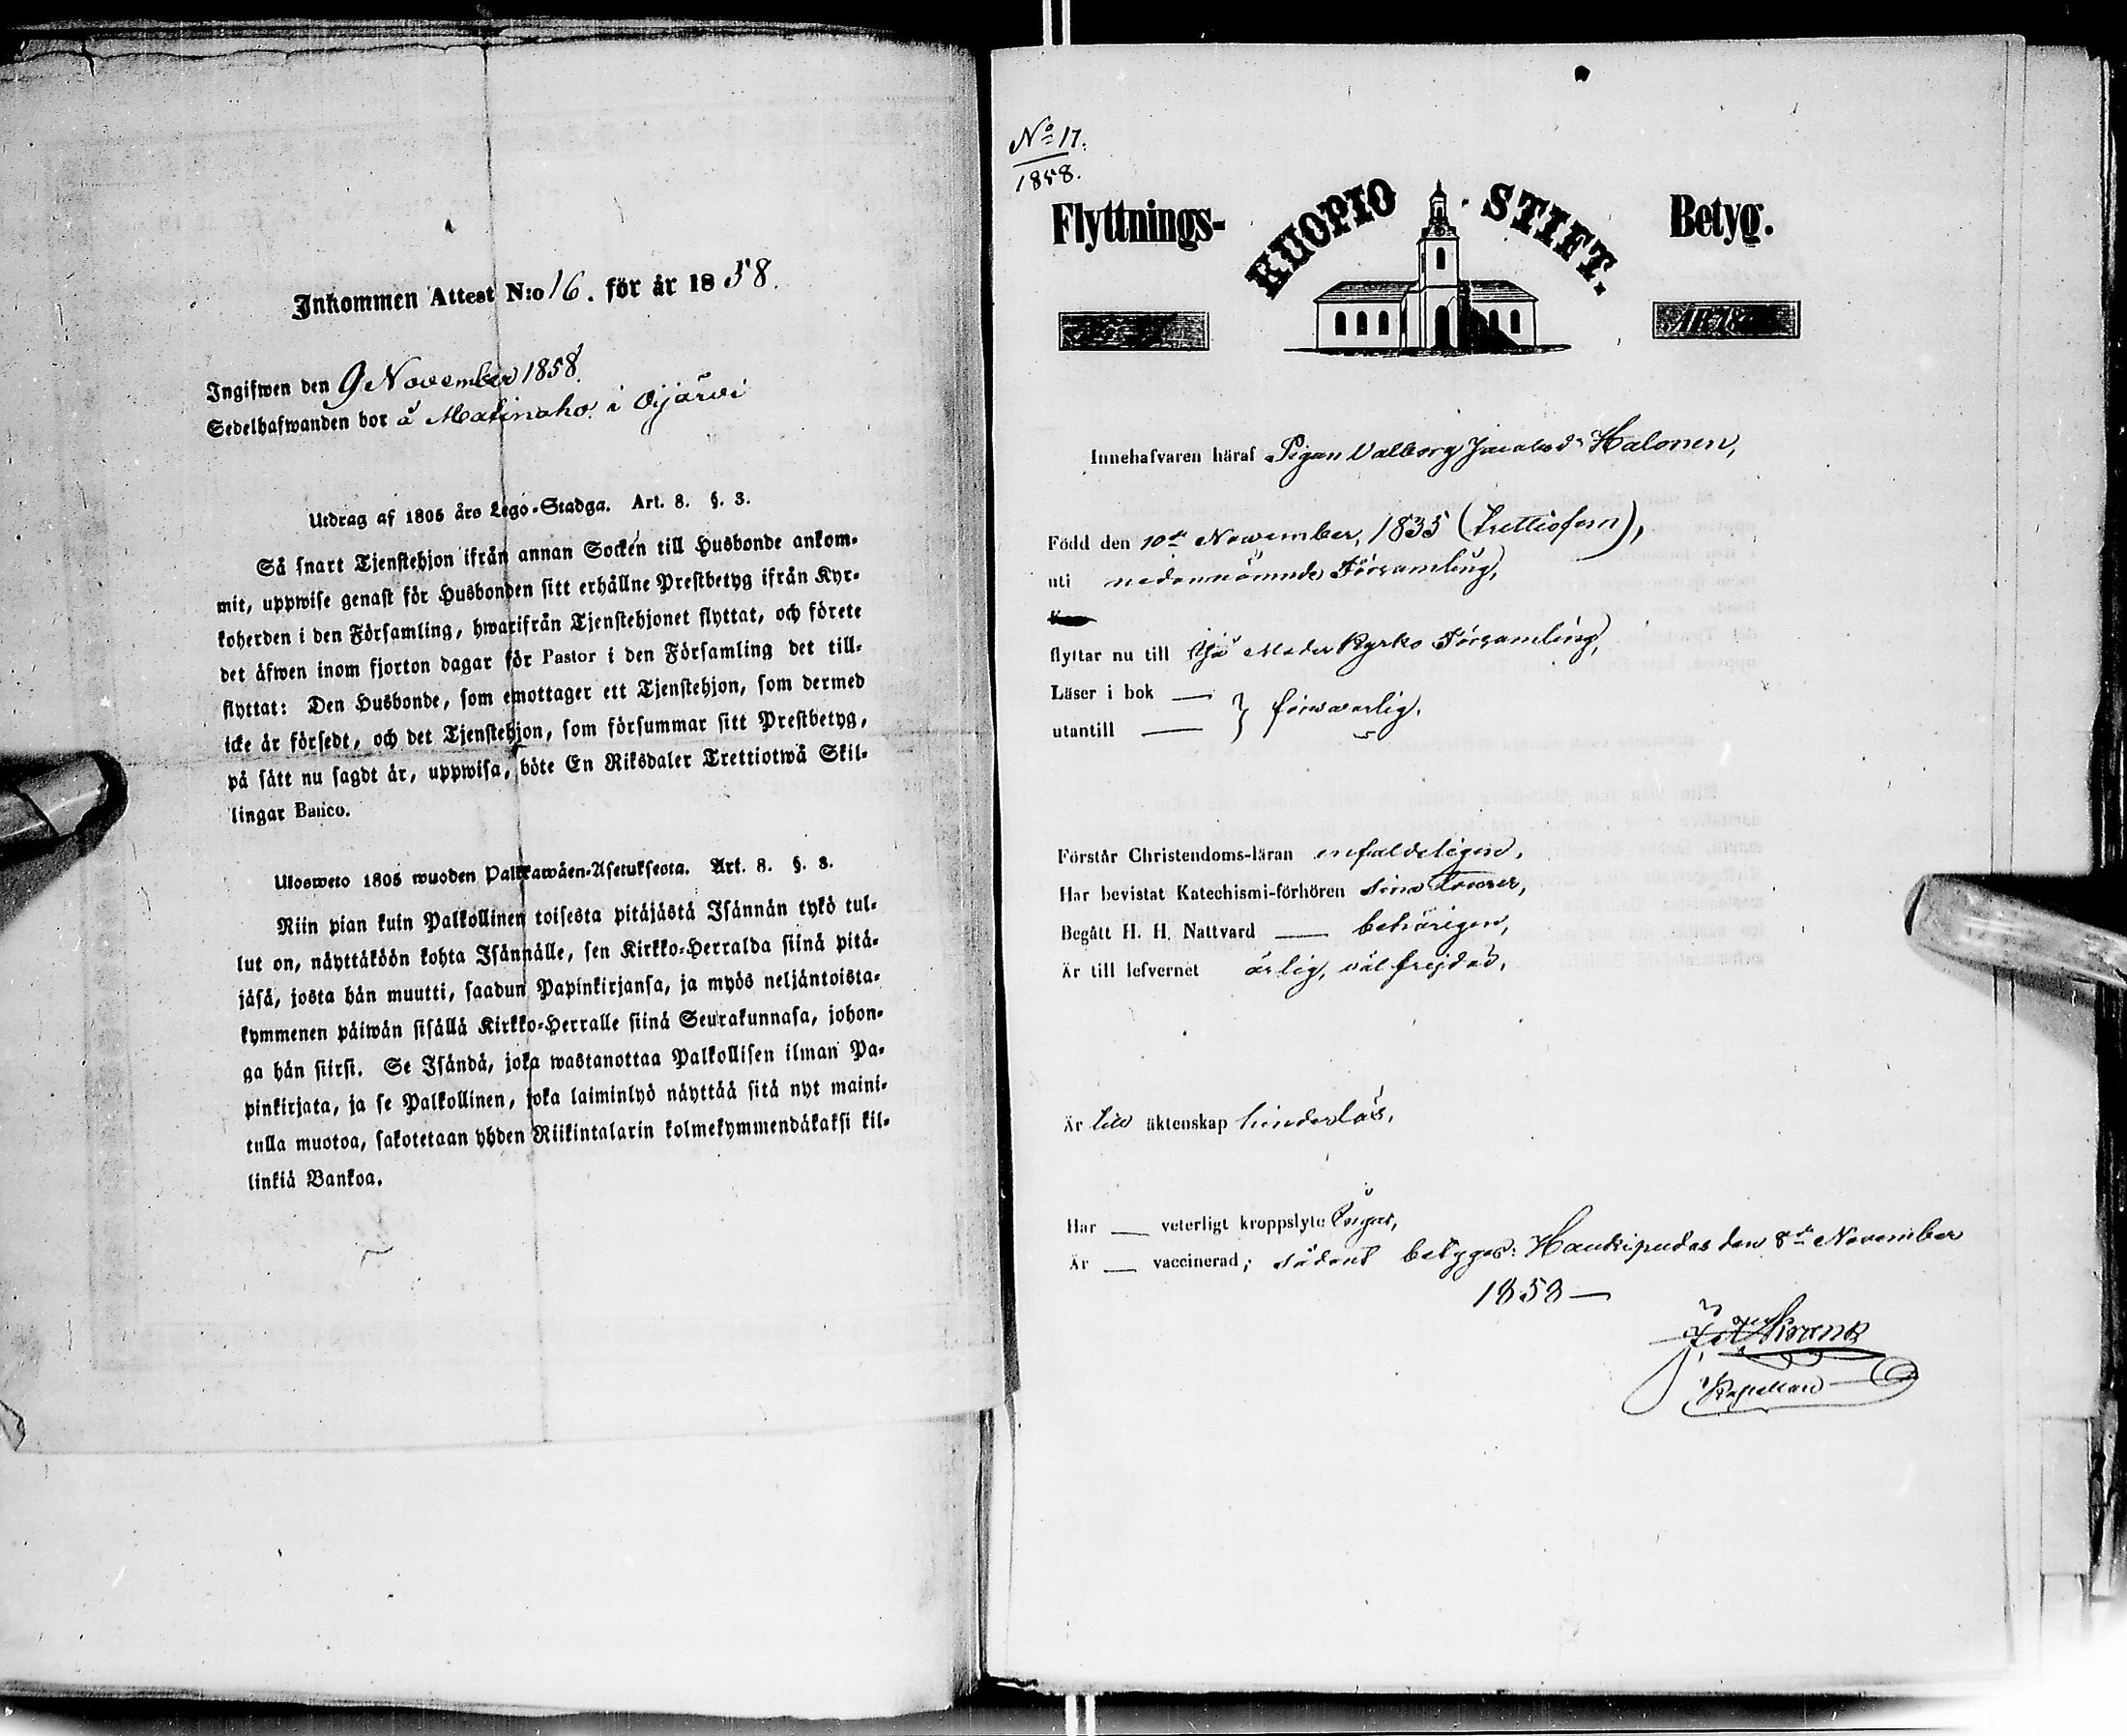 Inkommen Attest N:o 16. för år 1858.
Ingifwen den 9 November 1858.
Sedelhafwanden bor å Matinaho i Oijärvi
Utdrag af 1805 års Lego-Stadga. Art. 8. §. 3.
Så snart Tjenstehjon ifrån annan Socken till Husbonde ankom-
mit, uppwise genast för Husbonden sitt erhållne Prestbetyg ifrån Kyr-
koherden i den Församling, hwarifrån Tjenstehjonet flyttat, och förete
det äfwen inom fjorton dagar för Pastor i den Församling det till-
flyttat: Den Husbonde, som emottager ett Tjenstehjon, som dermed
icke är försedt, och det Tjenstehjon, som försummar sitt Prestbetyg,
på sätt nu sagdt är, uppwisa, böte En Riksdaler Trettiotwå Skil-
lingar Banco.
Ulosweto 1805 wuoden Palkkawäen-Asetuksesta. Art. 8. §. 3.
Niin pian kuin Palkollinen toisesta pitäjästä Isännän tykö tul-
lut on, näyttäköön kohta Isännälle, sen Kirkko-Herralda siinä pitä-
jäsä, josta hän muutti, saadun Papinkirjansa, ja myös neljäntoista-
kymmenen päiwän sisällä Kirkko-Herralle siinä Seurakunnasa, johon-
ga hän siirsi. Se Isändä, joka wastanottaa Palkollisen ilman Pa-
pinkirjata, ja se Palkollinen, joka laiminlyö näyttää sitä nyt maini-
tulla muotoa, sakotetaan yhden Riikintalarin kolmekymmendäkaksi kil-
linkiä Bankoa.
No 17.
1858.
Flyttnings- KUOPIO STIFT. Betyg.
Innehafvaren häraf Pigan Valborg Jacobsdr Halonen,
Född den 10de November, 1835 (trettiofem),
uti nedannämnde Församling,
flyttar nu till Ijo Moder Kyrko Församling,
Läser i bok — } försvarlig.
utantill —
Förstår Christendoms-läran enfaldeligen,
Har bevistat Katechismi-förhören sina
Begått H. H. Nattvard — behörigen,
Är till lefvernet ärlig, välfrejdad,
Är till äktenskap hinderlös,
Har — veterligt kroppslyte
Är — vaccinerad; sådant betygas: Haukipudas den 8de November
1858 —
Krank
Kapellan